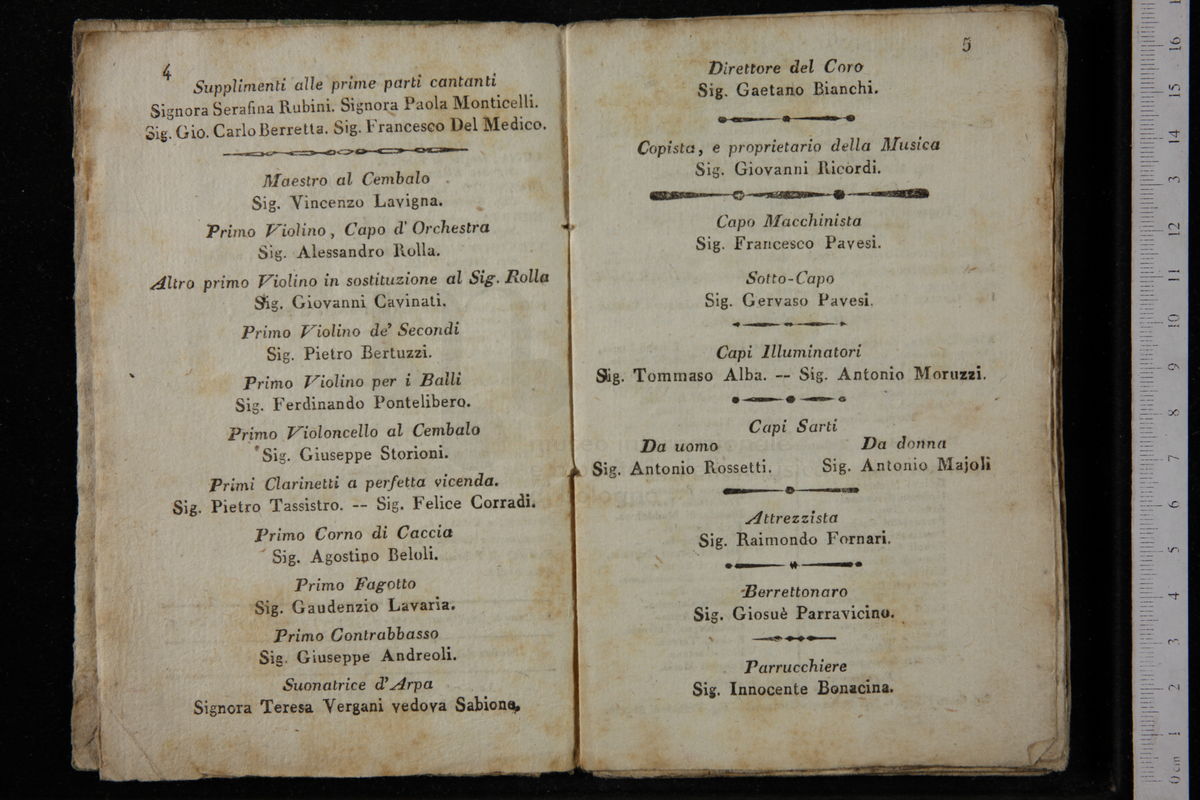 4
Supplimenti alle prime parti cantanti
Signora Serafina Rubini. Signora Paola Monticelli.
Sig. Gio. Carlo Berretta. Sig. Francesco Del Medico.
Maestro al Cembalo
Sig. Vincenzo Lavigna.
Primo Violino, Capo d'Orchestra
Sig. Alessandro Rolla.
Altro primo Violino in sostituzione al Sig. Rolla
Sig. Giovanni Cavinati.
Primo Violino de' Secondi
Sig. Pietro Bertuzzi.
Primo Violino per i Balli
Sig. Ferdinando Pontelibero.
Primo Violoncello al Cembalo
Sig. Giuseppe Storioni.
Primi Clarinetti a perfetta vicenda.
Sig. Pietro Tassistro. -- Sig. Felice Corradi.
Primo Corno di Caccia
Sig. Agostino Beloli.
Primo Fagotto
Sig. Gaudenzio Lavaria.
Primo Contrabbasso
Sig. Giuseppe Andreoli.
Suonatrice d'Arpa
Signora Teresa Vergani vedova Sabione.
5
Direttore del Coro
Sig. Gaetano Bianchi.
Copista, e proprietario della Musica
Sig. Giovanni Ricordi.
Capo Macchinista
Sig. Francesco Pavesi.
Sotto-Capo
Sig. Gervaso Pavesi.
Capi Illuminatori
Sig. Tommaso Alba. -- Sig. Antonio Moruzzi.
Capi Sarti
Da uomo Da donna
Sig. Antonio Rossetti. Sig. Antonio Majoli
Attrezzista
Sig. Raimondo Fornari.
Berrettonaro
Sig. Giosuè Parravicino.
Parrucchiere
Sig. Innocente Bonacina.
0 cm 1 2 3 4 5 6 7 8 9 10 11 12 13 14 15 16